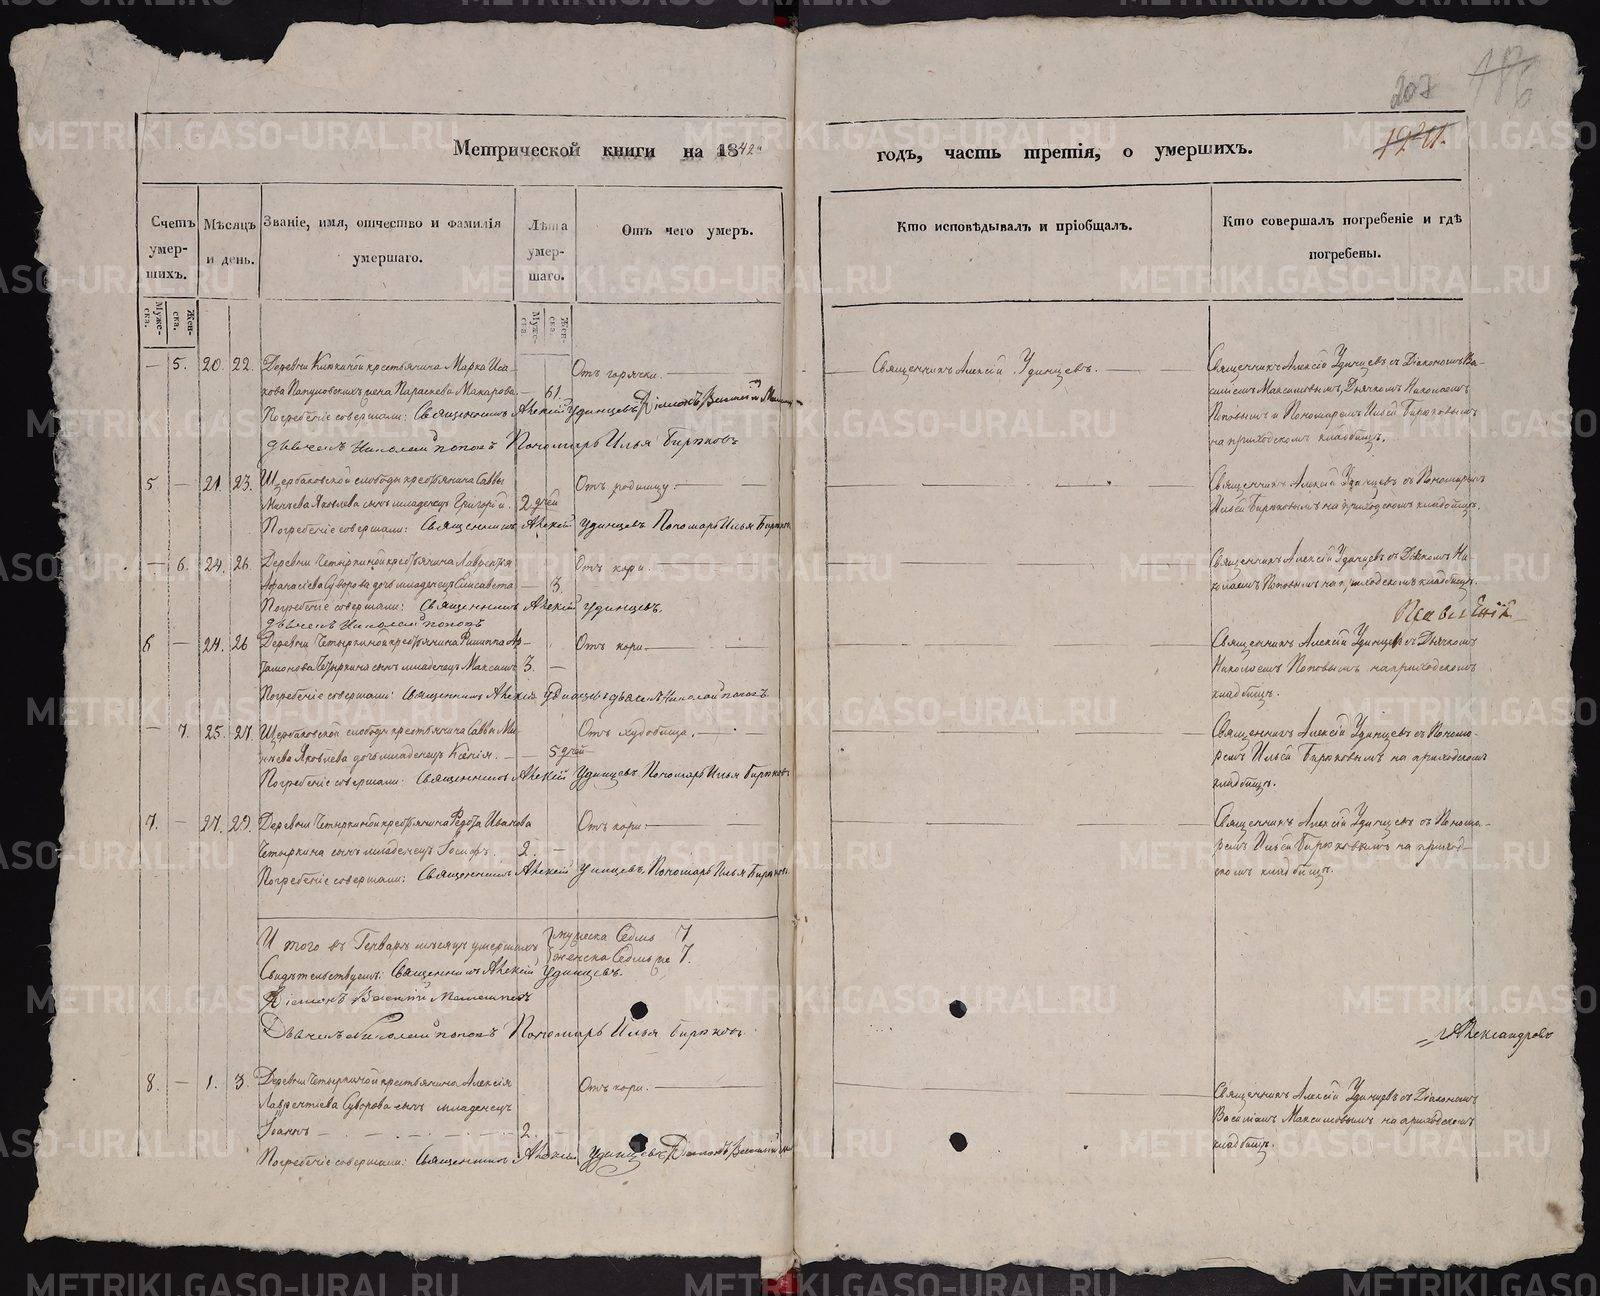 207
Метрической книги на 1842й годъ, часть третія, о умершихъ.
Счетъ умер-
шихъ.
Муже-
ска.
Жен-
ска.
Мѣсяцъ
и день.
Званіе, имя, отчество и фамилія
умершаго.
Лѣта
умер-
шаго.
Муже-
ска.
Жен-
ска.
Отъ чего умеръ.
Кто исповѣдывалъ и пріобщалъ.
Кто совершалъ погребеніе и гдѣ
погребены.
— 5. 20. 22. Деревни крестьянина Марка Иса-
кова жена Параскева Макарова — 61. Отъ горячки.
Священникъ Алексій Удинцевъ.
Священникъ Алексій Удинцевъ съ Діакономъ Ва-
силіемъ Максимовымъ, Дьячкомъ Николаемъ
Поповымъ и Пономаремъ Ильей Бирюковымъ
на приходскомъ кладбищѣ.
Погребеніе совершали: Священникъ Алексій Удинцевъ Діаконъ Василій
дьячекъ Николай Поповъ Пономарь Илья Бирюковъ
5 — 21. 23. Щербаковской слободы крестьянина Саввы
Минѣева Яковлева сынъ младенецъ Григорій. 2 дней Отъ родимцу.
Священникъ Алексій Удинцевъ съ Пономаремъ
Ильей Бирюковымъ на приходскомъ кладбищѣ.
Погребеніе совершали: Священникъ Алексій Удинцевъ Пономарь Илья Бирюковъ
— 6. 24. 26. Деревни Четыркиной крестьянина Лаврентія
Афанасіева Суворова дочь младенецъ Елисавета — 3. Отъ кори.
Священникъ Алексій Удинцевъ съ Ни-
колаемъ Поповымъ на приходскомъ кладбищѣ.
Погребеніе совершали: Священникъ Алексій Удинцевъ.
дьячекъ Николай Поповъ
6 — 24. 26 Деревни Четыркиной крестьянина Филиппа Ар-
тамонова Четыркина сынъ младенецъ Максимъ 3. — Отъ кори
Священникъ Алексій Удинцевъ съ Дьячкомъ
Николаемъ Поповымъ на приходскомъ
кладбищѣ.
Погребеніе совершали: Священникъ Алексій Удинцевъ дьячекъ Николай Поповъ
— 7. 25. 27. Щербаковской слободы крестьянина Саввы Ми-
нѣева Яковлева дочь младенецъ Ксенія. — 5 дней Отъ худобища.
Священникъ Алексій Удинцевъ съ Понома-
ремъ Ильей Бирюковымъ на приходскомъ
кладбищѣ.
Погребеніе совершали: Священникъ Алексій Удинцевъ Пономарь Илья Бирюковъ
7. — 27. 29. Деревни Четыркиной крестьянина Федота Иванова
Четыркина сынъ младенецъ Іосифъ. 2. — Отъ кори.
Священникъ Алексій Удинцевъ съ Понома-
ремъ Ильей Бирюковымъ на приход-
скомъ кладбищѣ.
Погребеніе совершали: Священникъ Алексій Удинцевъ, Пономарь Илья Бирюковъ
И того въ Генварѣ мѣсяцѣ умершихъ мужеска Седмь 7
женска Седмь 7.
Свидѣтельствуемъ: Священникъ Алексій Удинцевъ.
Діаконъ Василій Максимовъ
Дьячекъ Николай Поповъ Пономарь Илья Бирюковъ.
Александровъ
8. — 1. 3. Деревни Четыркиной крестьянина Алексія
Лаврентіева Суворова сынъ младенецъ
Іоаннъ — 2. — Отъ кори.
Священникъ Алексій Удинцевъ съ Діакономъ
Василіемъ Максимовымъ на приходскомъ
кладбищѣ.
Погребеніе совершали: Священникъ Алексій Удинцевъ, Діаконъ Василій
METRIKI.GASO-URAL.RU